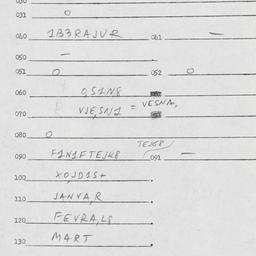 031 O
040 1B3RAJUR 041 —
050 —
051 O 052 O
060 O,S1N8
070 VJE,SN1 = VESNA,
080 O
TEJ68
090 F1N1FTEJK8 091 —
100 XO,JD1S+
110 JANVA,R
120 FEVRA,L8
130 MART